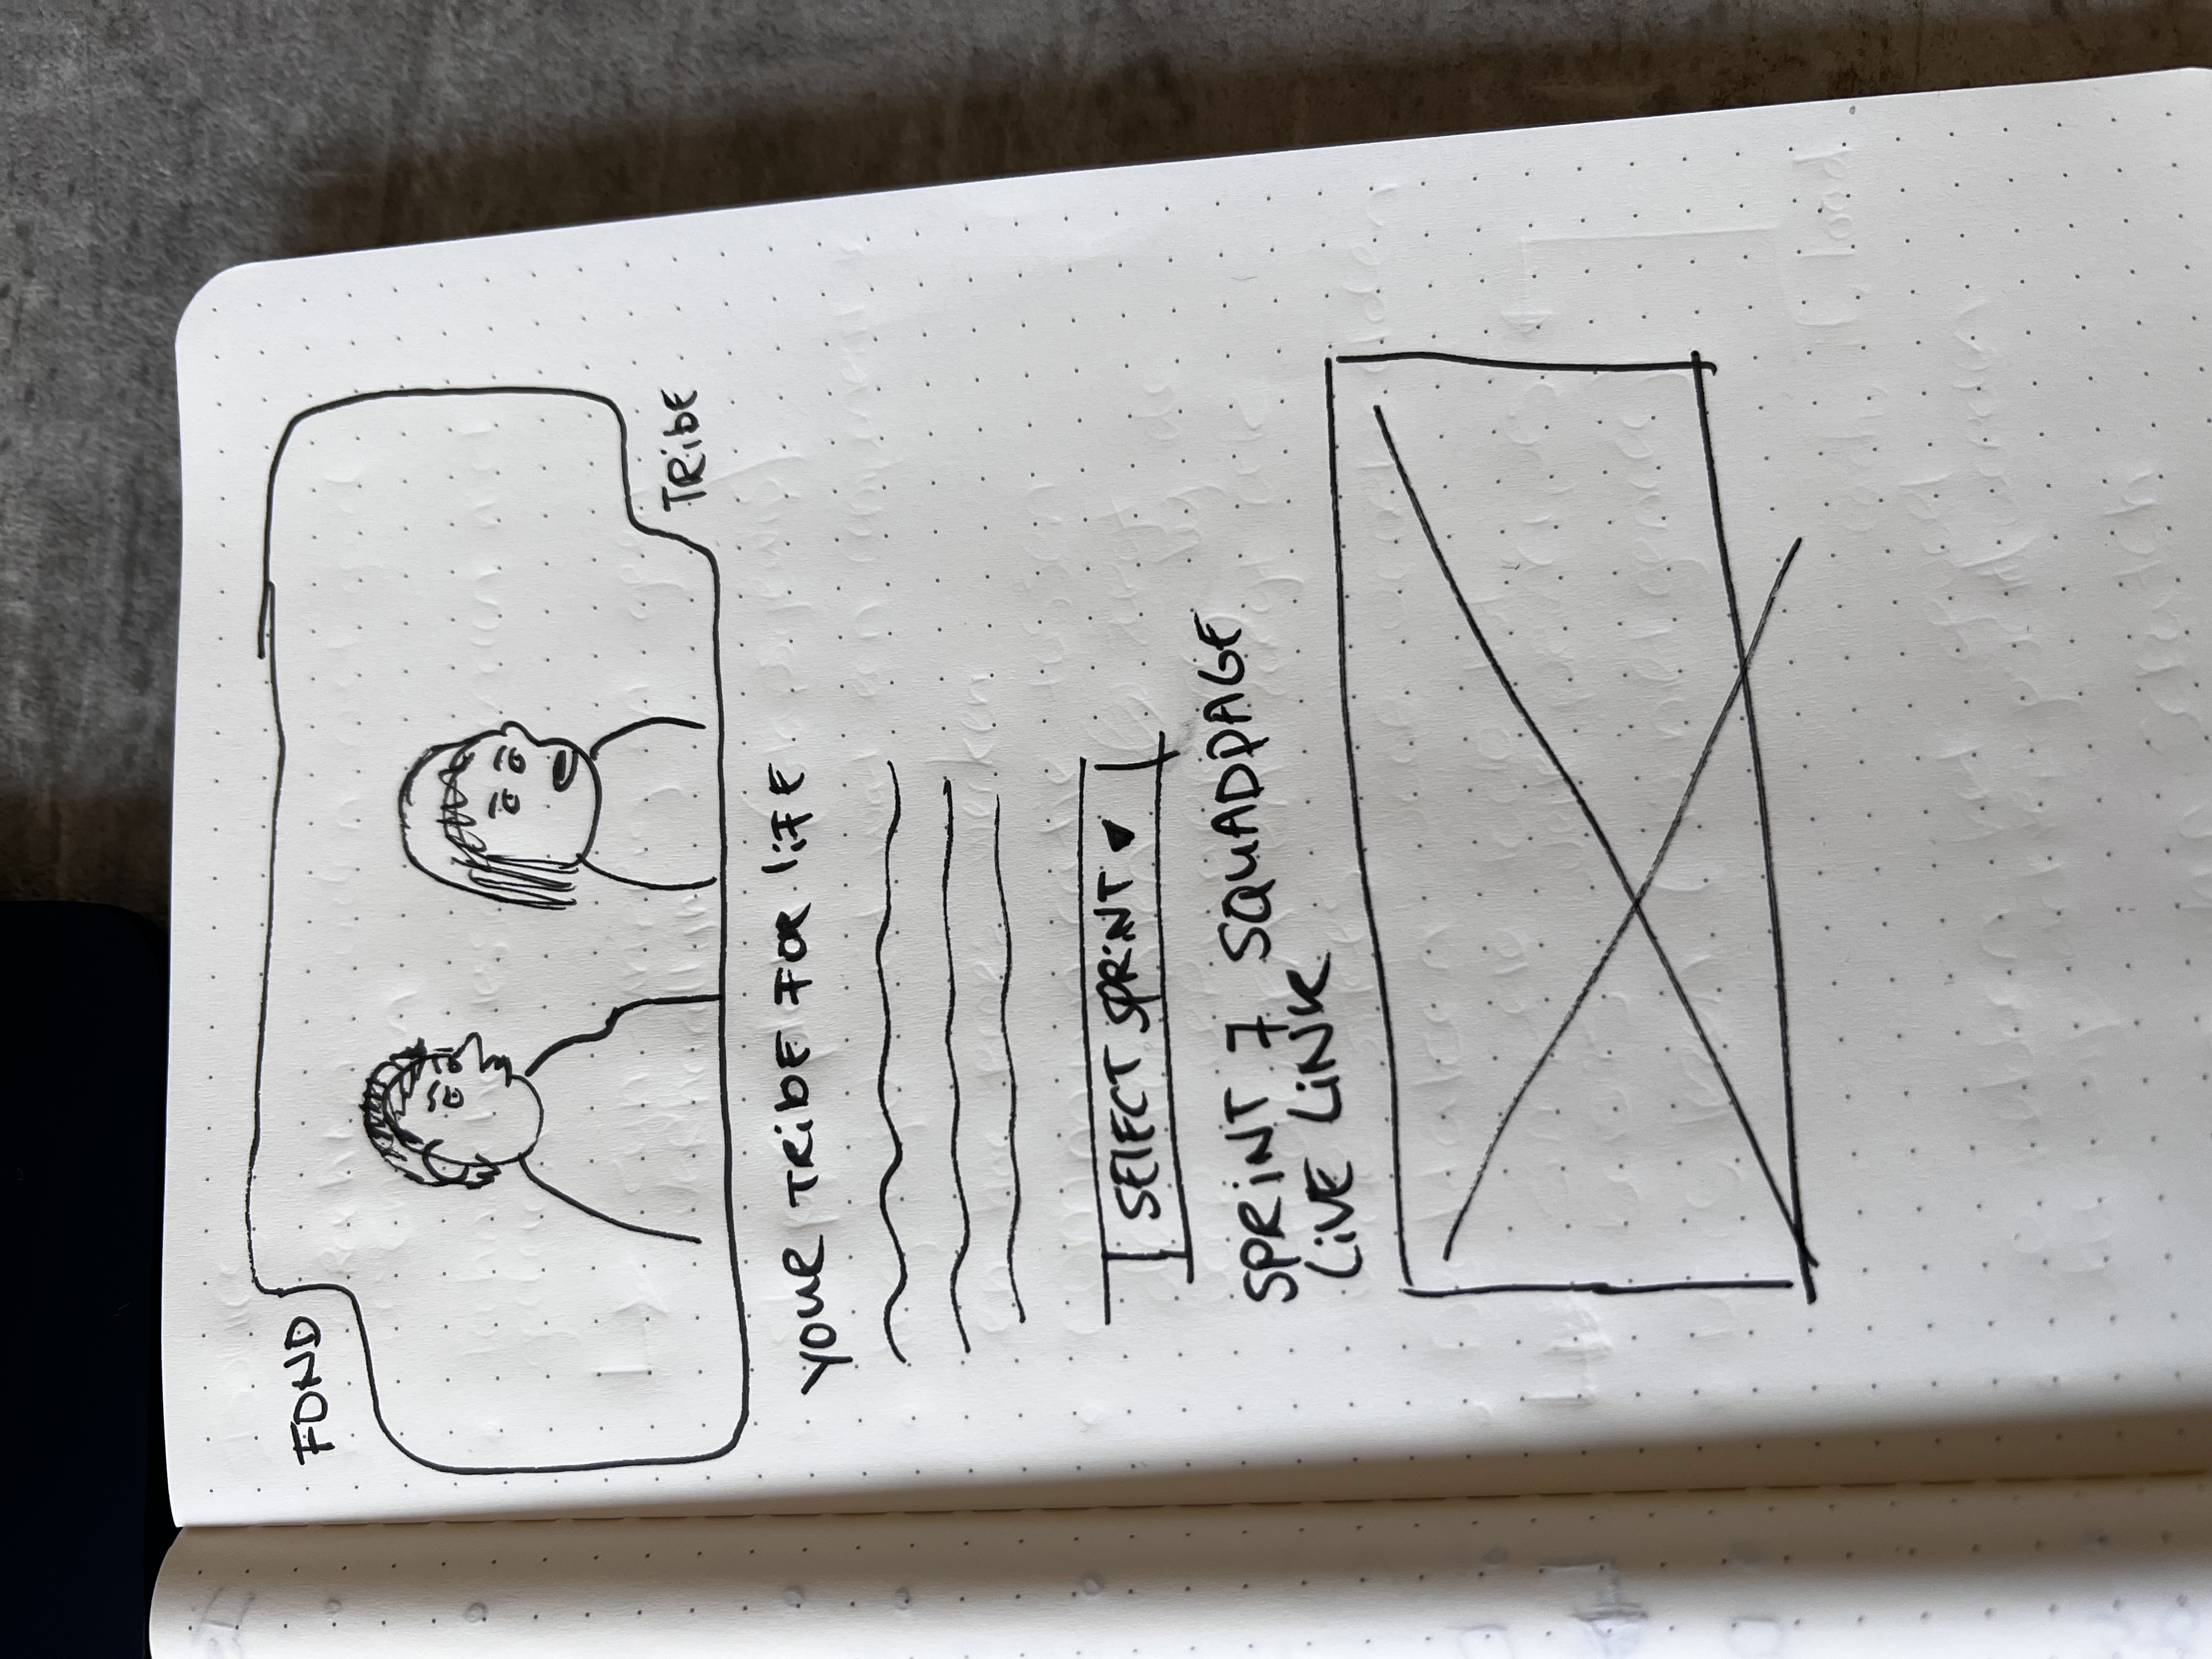 FOND
TRibE
YOUR TRibE FOR liFE
SElECT SPRiNT
SPRiNT 7 SQUADPAGE
LiVE LiNK